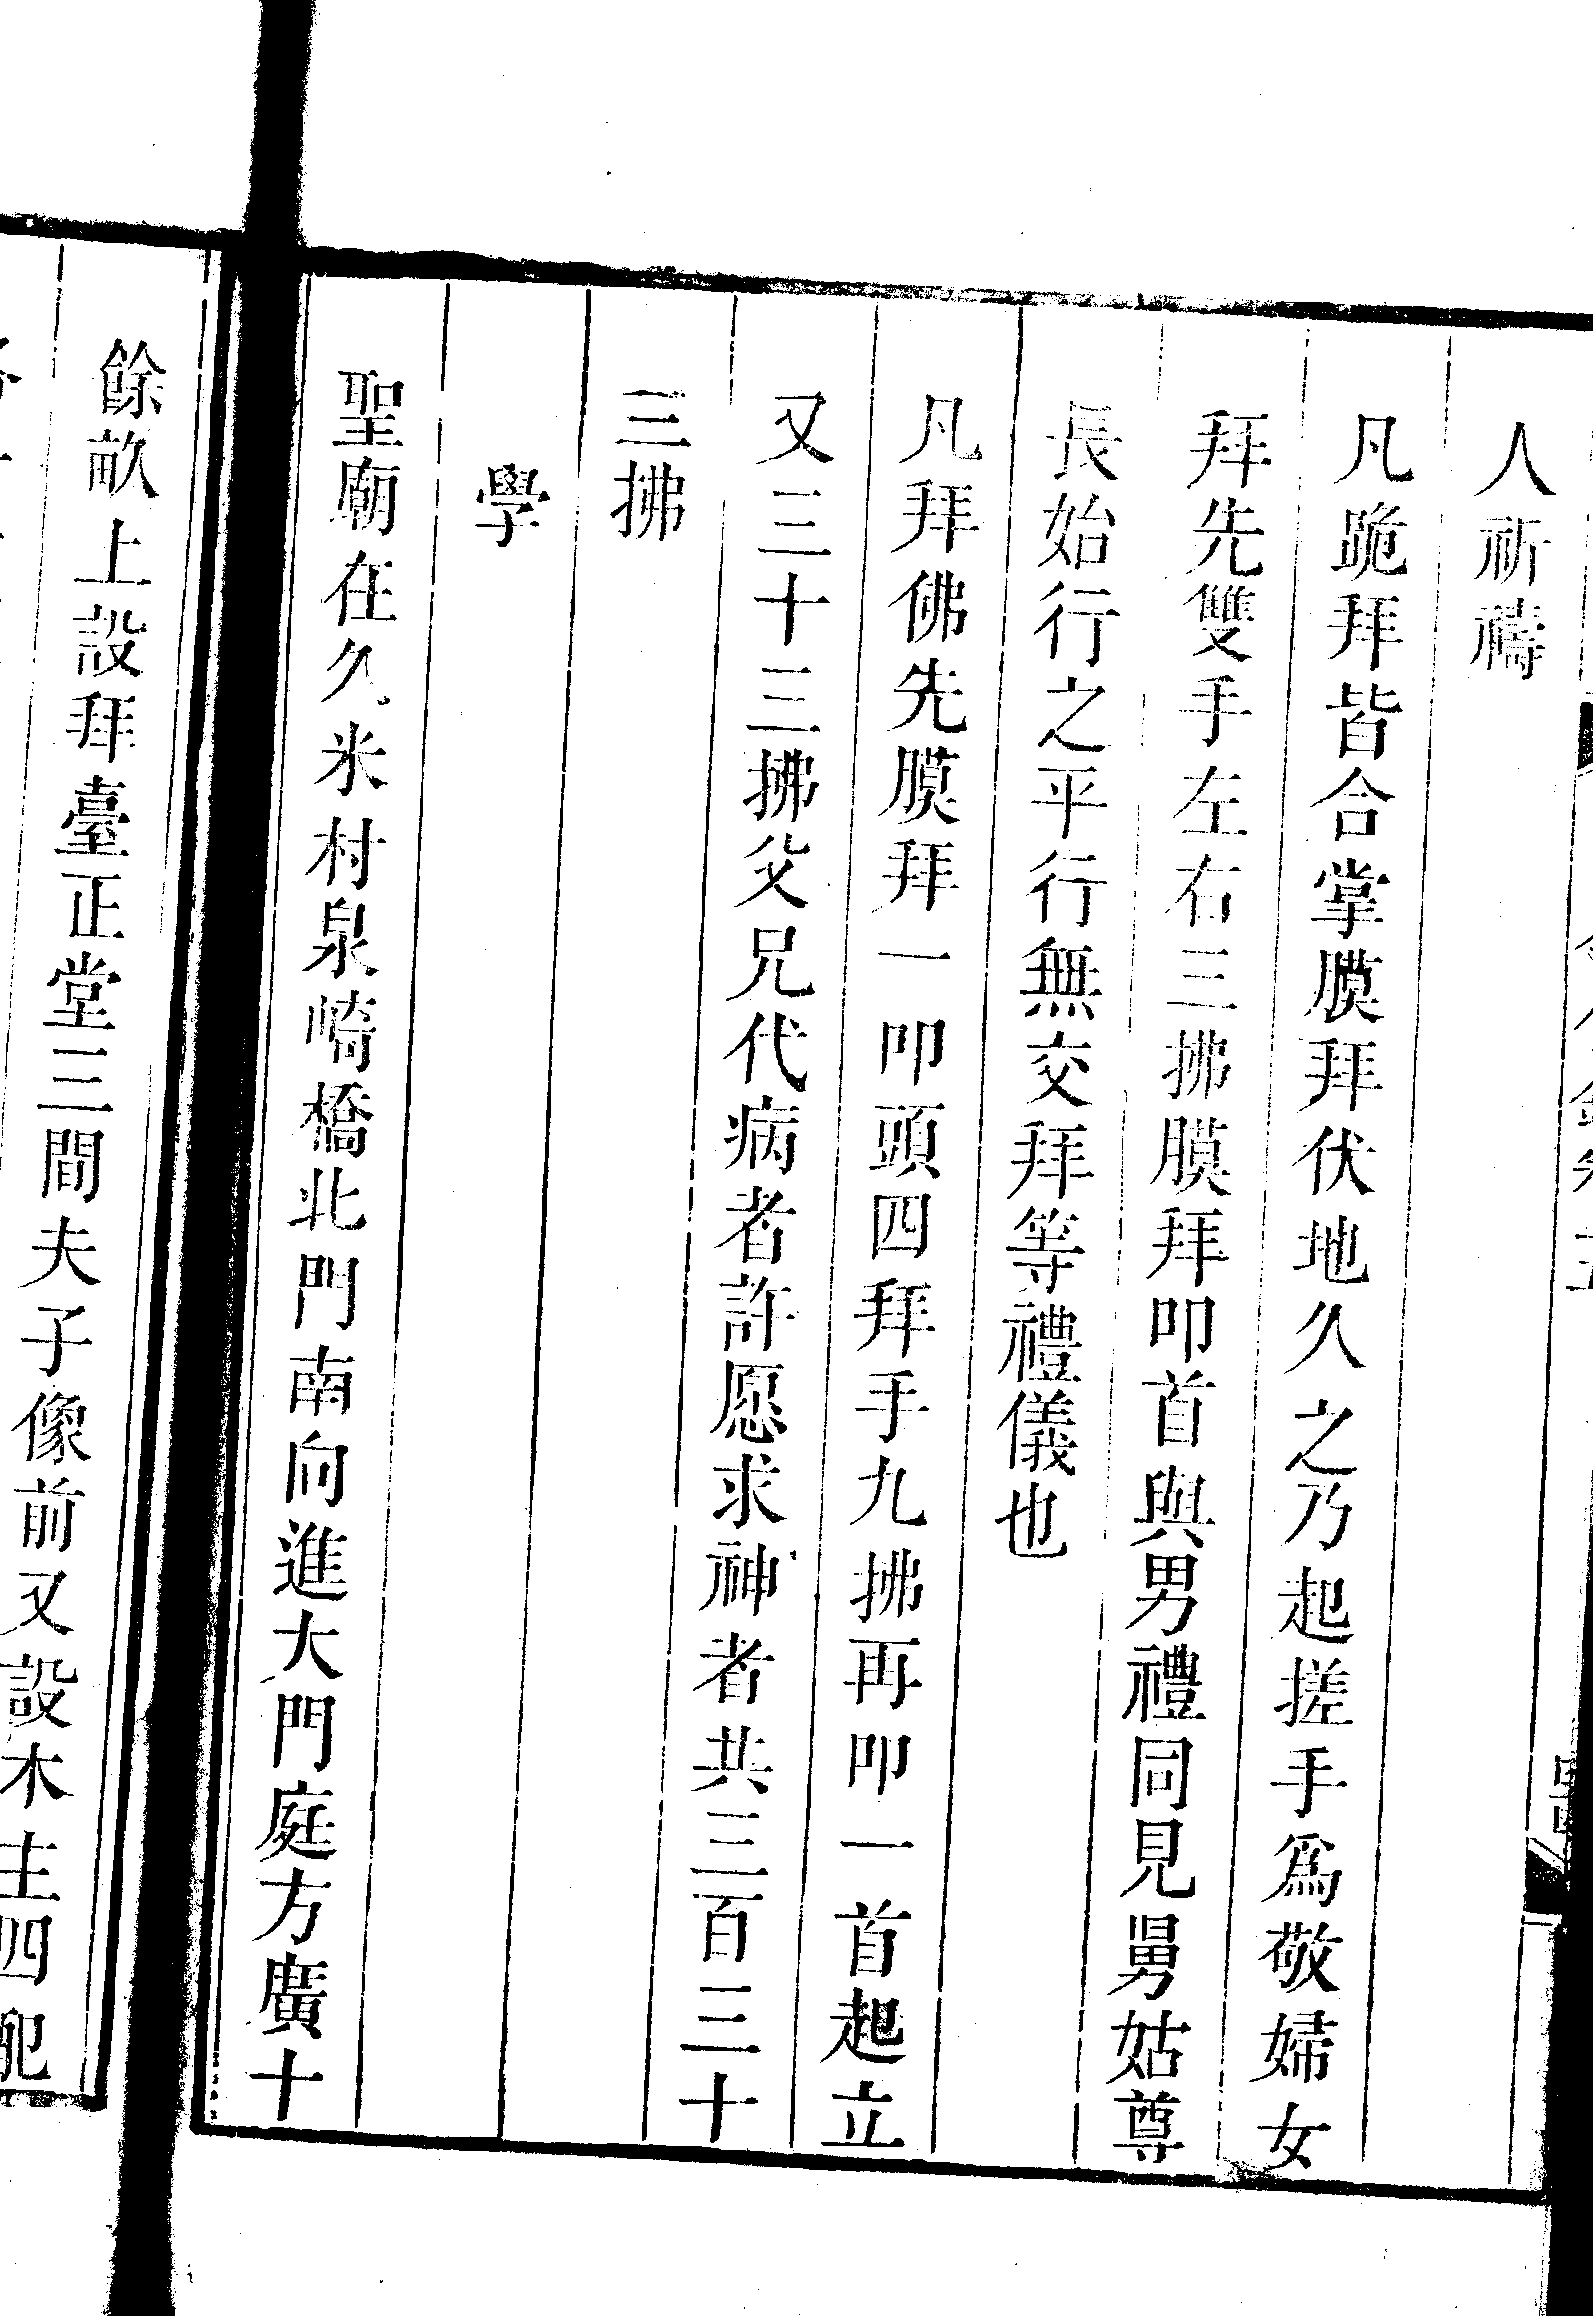 人祈禱
凡跪拜皆合掌膜拜伏地久之乃起搓手爲敬婦女
拜先雙手左右三拂膜拜叩首與男禮同見舅姑尊
長始行之平行無交拜等禮儀也
凡拜佛先膜拜一叩頭四拜手九拂再叩一首起立
又三十三拂父兄代病者許愿求神者共三百三十
三拂
學
聖廟在久米村泉崎橋北門南向進大門庭方廣十
餘畝上設拜臺正堂三間夫子像前又設木主四配